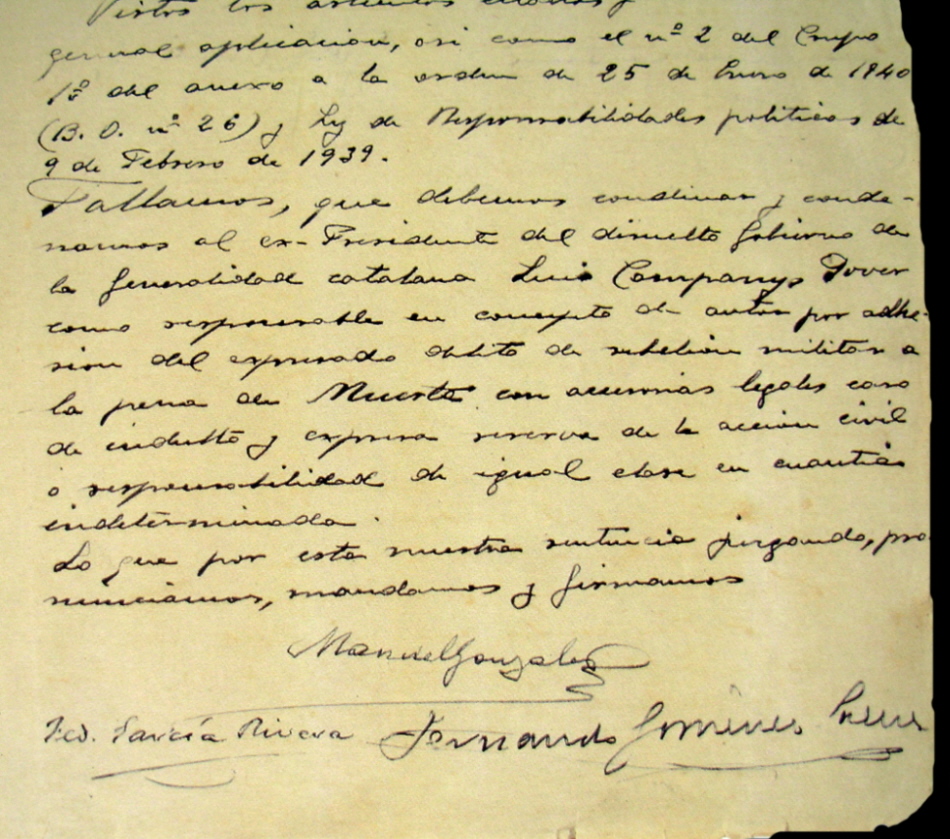 Vistos los artículos citados y
general aplicación, asi como el nº 2 del Grupo
1º del anexo a la orden de 25 de Enero de 1940
(B. O. nº 26) y Ley de Responsabilidades politicas de
9 de Febrero de 1939.
Fallamos, que debemos condenar y conde-
namos al ex-Presidente del disuelto Gobierno de
la Generalidad catalana Luis Companys Jover
como responsable en concepto de autor por adhe-
sion del expresado delito de rebelión militar a
la pena de Muerte con accesorias legales caso
de indulto y expresa reserva de la acción civil
o responsabilidad de igual clase en cuantia
indeterminada.
Lo que por esta nuestra sentencia juzgando, pro
nunciamos, mandamos y firmamos
Manuel Gonzalez
Fed. García Rivera Fernando Giménez